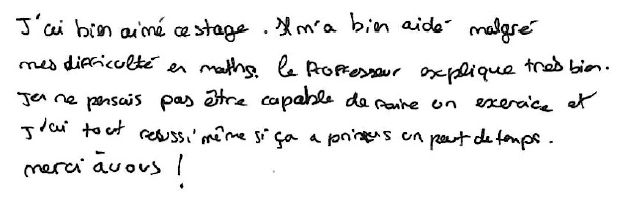 J'ai bien aimé ce stage. Il m'a bien aidé malgré
mes difficulté en maths. le Professeur explique très bien.
Je ne pensais pas être capable de faire un exercice et
J'ai tout réussi même si ça a pris un peut de temps.
merci à vous !